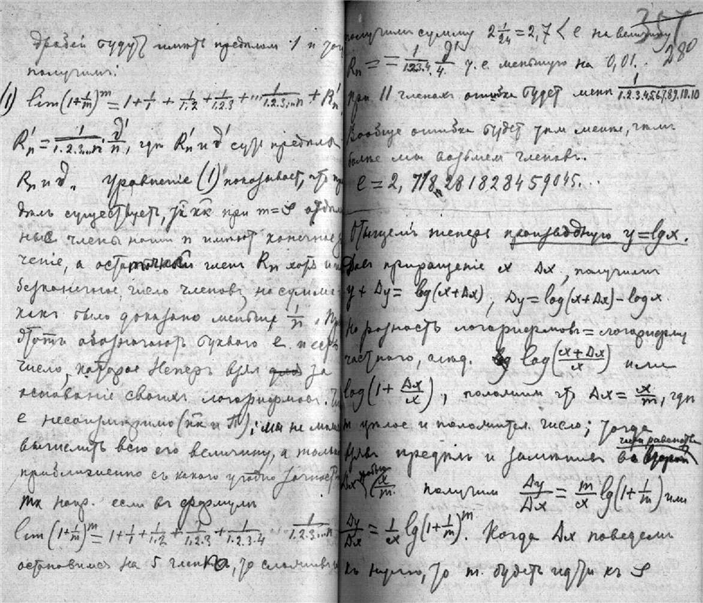 дробей будутъ имѣть предѣломъ 1 и
получимъ:
(1) lim(1+1/m)^m = 1+1/1+1/1.2+1/1.2.3+...1/1.2.3...n + R'n
R'n = 1/1.2.3...n · δ'/n, гдѣ R'n и δ' суть предѣлы
Rn и δ. Уравненіе (1) показываетъ, что
дѣлъ существуетъ, при m=
ные члены наши и имѣютъ конечное
ченіе, а остаточный членъ Rn хоть и
безконечное число членовъ, но сумма
какъ было доказано меньше 1/n.
обозначаютъ буквою e. и
число, которое Неперъ взялъ за
основаніе своихъ логарифмовъ.
e несоизмѣримо, мы не мо
вычислить всю его величину, а только
приближенно съ какою угодно точност
напр. если въ формулѣ
lim(1+1/m)^m = 1+1/1+1/1.2+1/1.2.3+1/1.2.3.4 1/1.2.3...n
остановимся на 5 членѣ, то
357
280
получимъ сумму 2 1/24 = 2,7 < e на величину
Rn = 1/1.2.3.4 δ'/4. т.е. меньшую на 0,01..
при 11 членахъ ошибка будетъ менѣе 1/1.2.3.4.5.6.7.8.9.10.10
Вообще ошибка будетъ тѣмъ менѣе, чѣмъ
болѣе мы возьмемъ членовъ.
e = 2,718,281828459045...
Отыщемъ теперь производную y=lgx.
Давъ приращеніе x Δx, получимъ
y+Δy = log(x+Δx), Δy=log(x+Δx)-logx.
Но разность логарифмовъ = логарифму
частнаго, слѣд. log((x+Δx)/x) или
log(1+Δx/x), положимъ что Δx = x/m, гдѣ
m цѣлое и положител. число; тогда
взявъ предѣлъ и
x/m получимъ Δy/Δx = m/x lg(1+1/m) или
Δy/Δx = 1/x lg(1+1/m)^m. Когда Δx поведемъ
къ нулю, то m будетъ идти къ